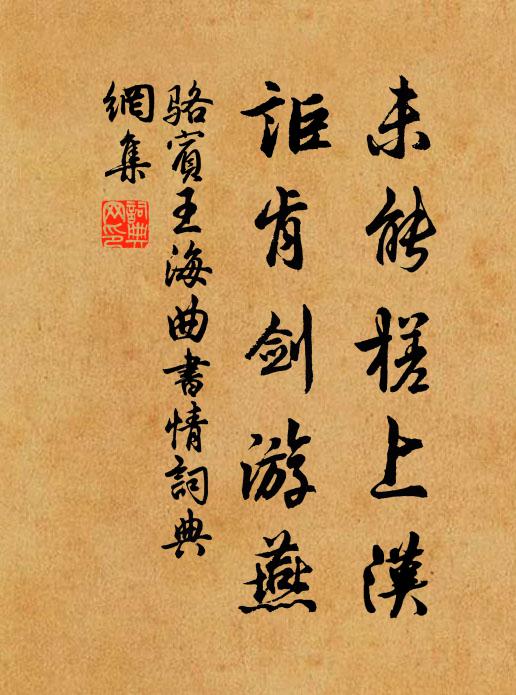 未能槎上漢
詎肯剑游燕
駱賓王海曲書情詞典
網集
詞典
网印